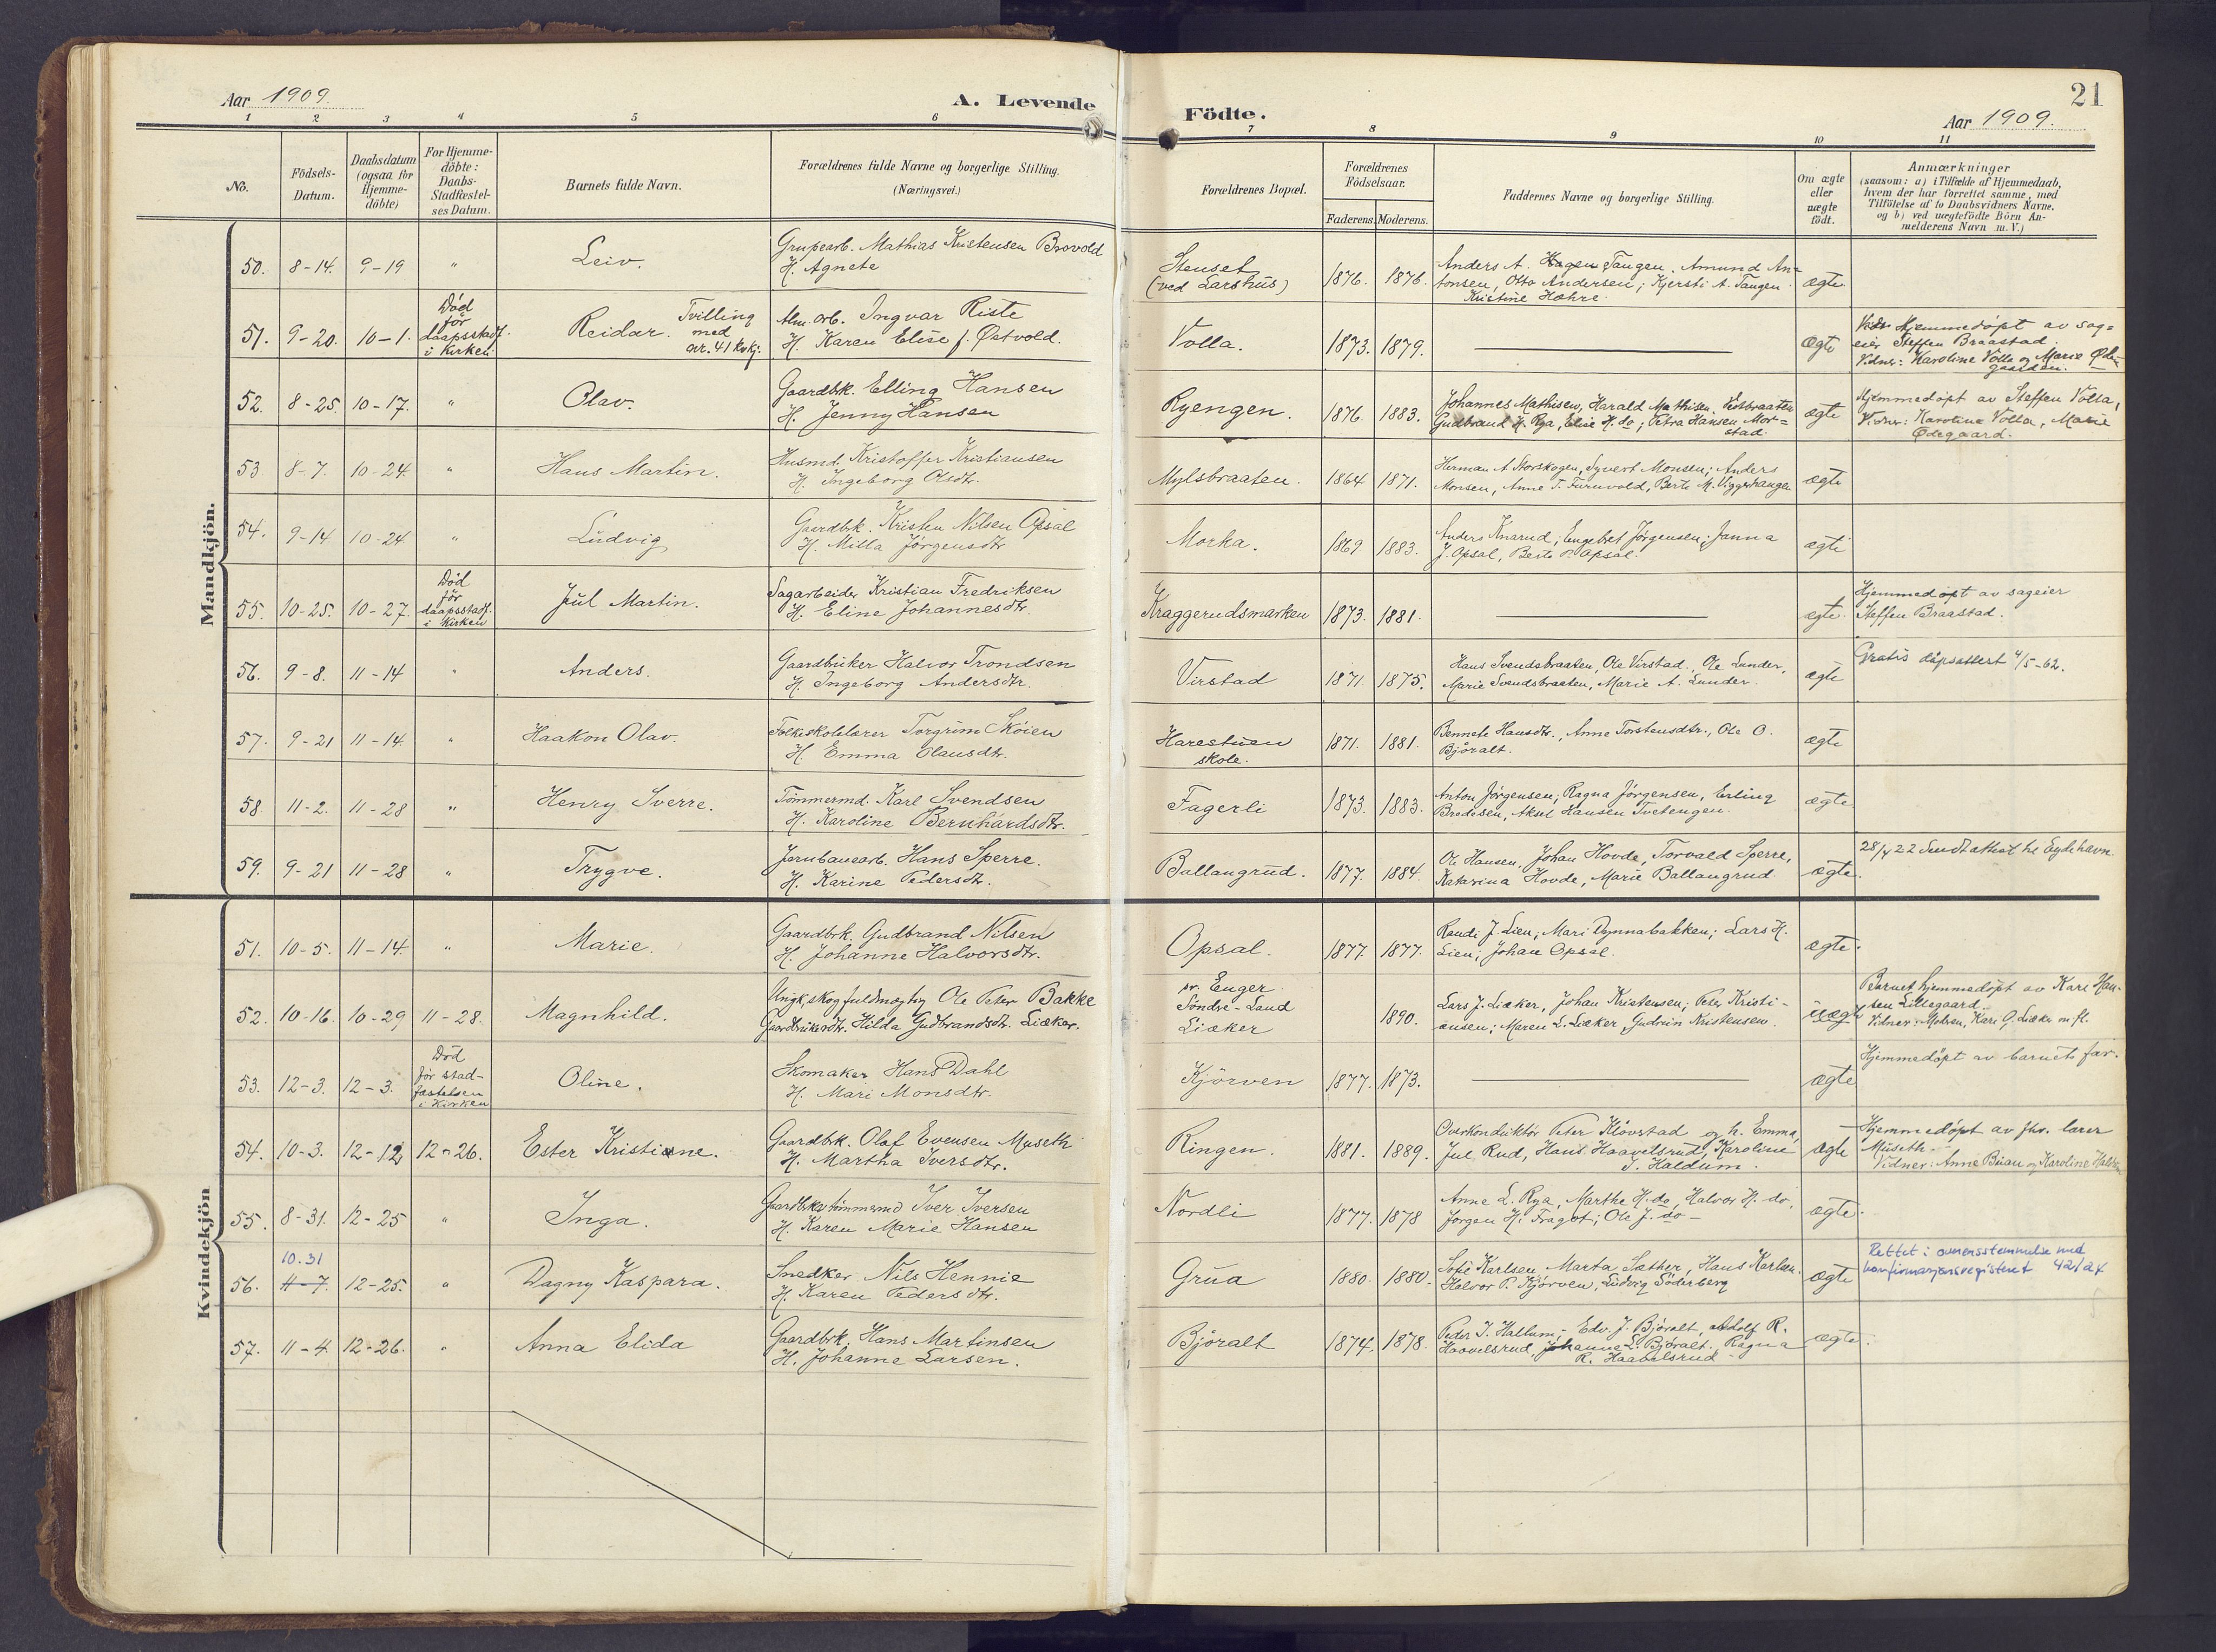 Aar 1909.
A. Levende
Födte.
21
Aar 1909.
1 2 3 4 5 6 7 8 9 10 11
No.
Födsels-
Datum.
Daabsdatum
(ogsaa for
Hjemme-
döbte)
For Hjemme-
döbte:
Daabs-
Stadfæstel-
ses Datum.
Barnets fulde Navn.
Forældrenes fulde Navne og borgerlige Stilling.
(Næringsvei.)
Forældrenes Bopæl.
Forældrenes
Födselsaar.
Faderens. Moderens.
Faddernes Navne og borgerlige Stilling.
Om ægte
eller
uægte
födt.
Anmærkninger
(saasom: a) i Tilfælde af Hjemmedaab,
hvem der har forrettet samme, med
Tilföielse af to Daabsvidners Navne.
og b) ved uægtefödte Börn An-
melderens Navn m. V.)
Mandkjön.
50. 8-14. 9-19 " Leiv.
Grupearb. Mathias Kristensen Brovold
H. Agnete
Stenset
(ved Larshus)
1876. 1876.
Anders A. Hagen Tangen, Amund An=
tonsen, Otto Andersen; Kjersti A. Tangen
Kristine Hæhre.
ægte
51. 9-20. 10-1.
Död
för
daapsstadf.
i Kirken.
Reidar.
Tvilling
med
nr. 41 kvkj.
Alm. arb. Ingvar Riste
H. Karen Elise f. Østvold.
Volla. 1873. 1879.
ægte
Hjemmedöpt av sag=
eier Steffen Braastad.
Vidner: Karoline Volla og Marie Øde-
gaarden.
52. 8-25. 10-17. " Olav.
Gaardbk. Elling Hansen
H. Jenny Hansen
Ryengen. 1876 1883.
Johannes Mathisen, Harald Mathisen,
Gudbrand H. Rya, Elise H. do; Petra Hansen Mor=
stad.
ægte
Hjemmedöpt av Steffen Volla,
Vidner: Karoline Volla, Marie
Ødegaard.
53 8-7. 10-24. " Hans Martin.
Husmd. Kristoffer Kristiansen
H. Ingeborg Olsdtr.
Mylsbraaten. 1864 1871.
Herman A. Storskogen, Syvert Monsen; Anders
Monsen, Anne T. Furuvold, Berte M. Viggerhaugen
ægte
54. 9-14 10-24 " Ludvig
Gaardbk. Kristen Nilsen Opsal
H. Milla Jörgensdtr
Morka. 1869 1883.
Anders Knarud; Engebret Jörgensen; Janna
J. Opsal, Berte P. Opsal.
ægte
55. 10-25. 10-27.
Död
för
daapsstadf.
i Kirken
Jul Martin.
Sagarbeider Kristian Fredriksen
H. Eline Johannesdtr.
Kraggerudsmarken 1873. 1881.
ægte.
Hjemmedöpt av sageier
Steffen Braastad.
56. 9-8. 11-14 " Anders.
Gaardbruker Halvor Trondsen
H. Ingeborg Andersdtr.
Virstad 1871 1875.
Hans Svendsbraaten, Ole Virstad, Ole Lunder,
Marie Svendsbraaten, Marie A. Lunder.
ægte
Gratis dåpsattest 4/5-62.
57. 9-21 11-14. " Haakon Olav.
Folkeskolelærer Torgrim Skøien
H. Emma Olausdtr.
Harestuen
skole.
1871. 1881.
Bennete Hansdtr., Anne Torstensdtr., Ole O.
Björalt.
ægte
58 11-2. 11-28 " Henry Sverre.
Tömmermd. Karl Svendsen
H. Karoline Bernhardsdtr.
Fagerli 1873. 1883.
Anton Jörgensen, Ragna Jörgensen, Erling
Bredesen, Aksel Hansen Tvetengen.
ægte
59. 9-21 11-28 " Trygve.
Jernbanearb. Hans Sperre.
H. Karine Pedersdtr.
Ballangrud. 1877. 1884.
Ole Hansen, Johan Hovde, Torvald Sperre,
Katarina Hovde, Marie Ballangrud
ægte.
28/4 22 Sendt attest til Eydehavn.
Kvindekjön
51. 10-5. 11-14. " Marie.
Gaardbrk. Gudbrand Nilsen
H. Johanne Halvorsdtr.
Opsal. 1877. 1877.
Randi J. Lien; Mari Dynnabakken; Lars H.
Lien; Johan Opsal.
ægte.
52. 10-16. 10-29 11-28. Magnhild.
Ungk. skogfuldmægtig Ole Peter Bakke
Gaardbrukerdtr. Hilda Gudbrandsdtr. Liæker.
pr. Enger
Söndre-Land
Liæker
1890.
Lars J. Liæker, Johan Kristensen; Peter Kristi-
ansen; Maren L. Liæker, Gudrun Kristensen.
uægte
Barnet hjemmedöpt av Kari Han-
sen Lillegaard.
Vidner: Modren, Kari G. Liæker m. fl.
53. 12-3. 12-3.
Död
för stad-
fæstelsen
i Kirken
Oline.
Skomaker Hans Dahl
H. Mari Monsdtr.
Kjörven 1877. 1873.
ægte
Hjemmedöpt av barnets far.
54. 10-3. 12-12 12-26. Ester Kristiane.
Gaardbk. Olaf Evensen Museth
H. Martha Iversdtr.
Ringen. 1881. 1889.
Overkonduktör Peter Klövstad og h. Emma,
Jul Rud, Hans Haavelsrud, Karoline
T. Haldum.
ægte
Hjemmedöpt av fhv. lærer
Museth-
Vidner: Anne Buan og Karoline
55. 8-31. 12-25 " Inga.
Gaardbk. tömmermd Iver Iversen
H. Karen Marie Hansen
Nordli 1877. 1878
Anne L. Rya, Marthe H. do, Halvor H. do,
Jorgen H. Fragot; Ole J. do-
ægte.
56.
10.31
11-7. 12-25. " Dagny Kaspara.
Snedker Nils Hennie
H. Karen Pedersdtr.
Grua 1880. 1880.
Sofie Karlsen, Marta Sather, Hans Karlsen.
Halvor P. Kjörven, Ludvig Söderberg
ægte
Rettet i overensstemmelse med
konfirmasjonsregisteret 42/24
57. 11-4. 12-26. " Anna Elida
Gaardbrk. Hans Martinsen
H. Johanne Larsen.
Björalt 1874. 1878.
Peder T. Hallum; Edv. J. Björalt, Adolf R.
Haavelsrud, Johanne L. Björalt, Ragna
R. Haavelsrud
ægte.